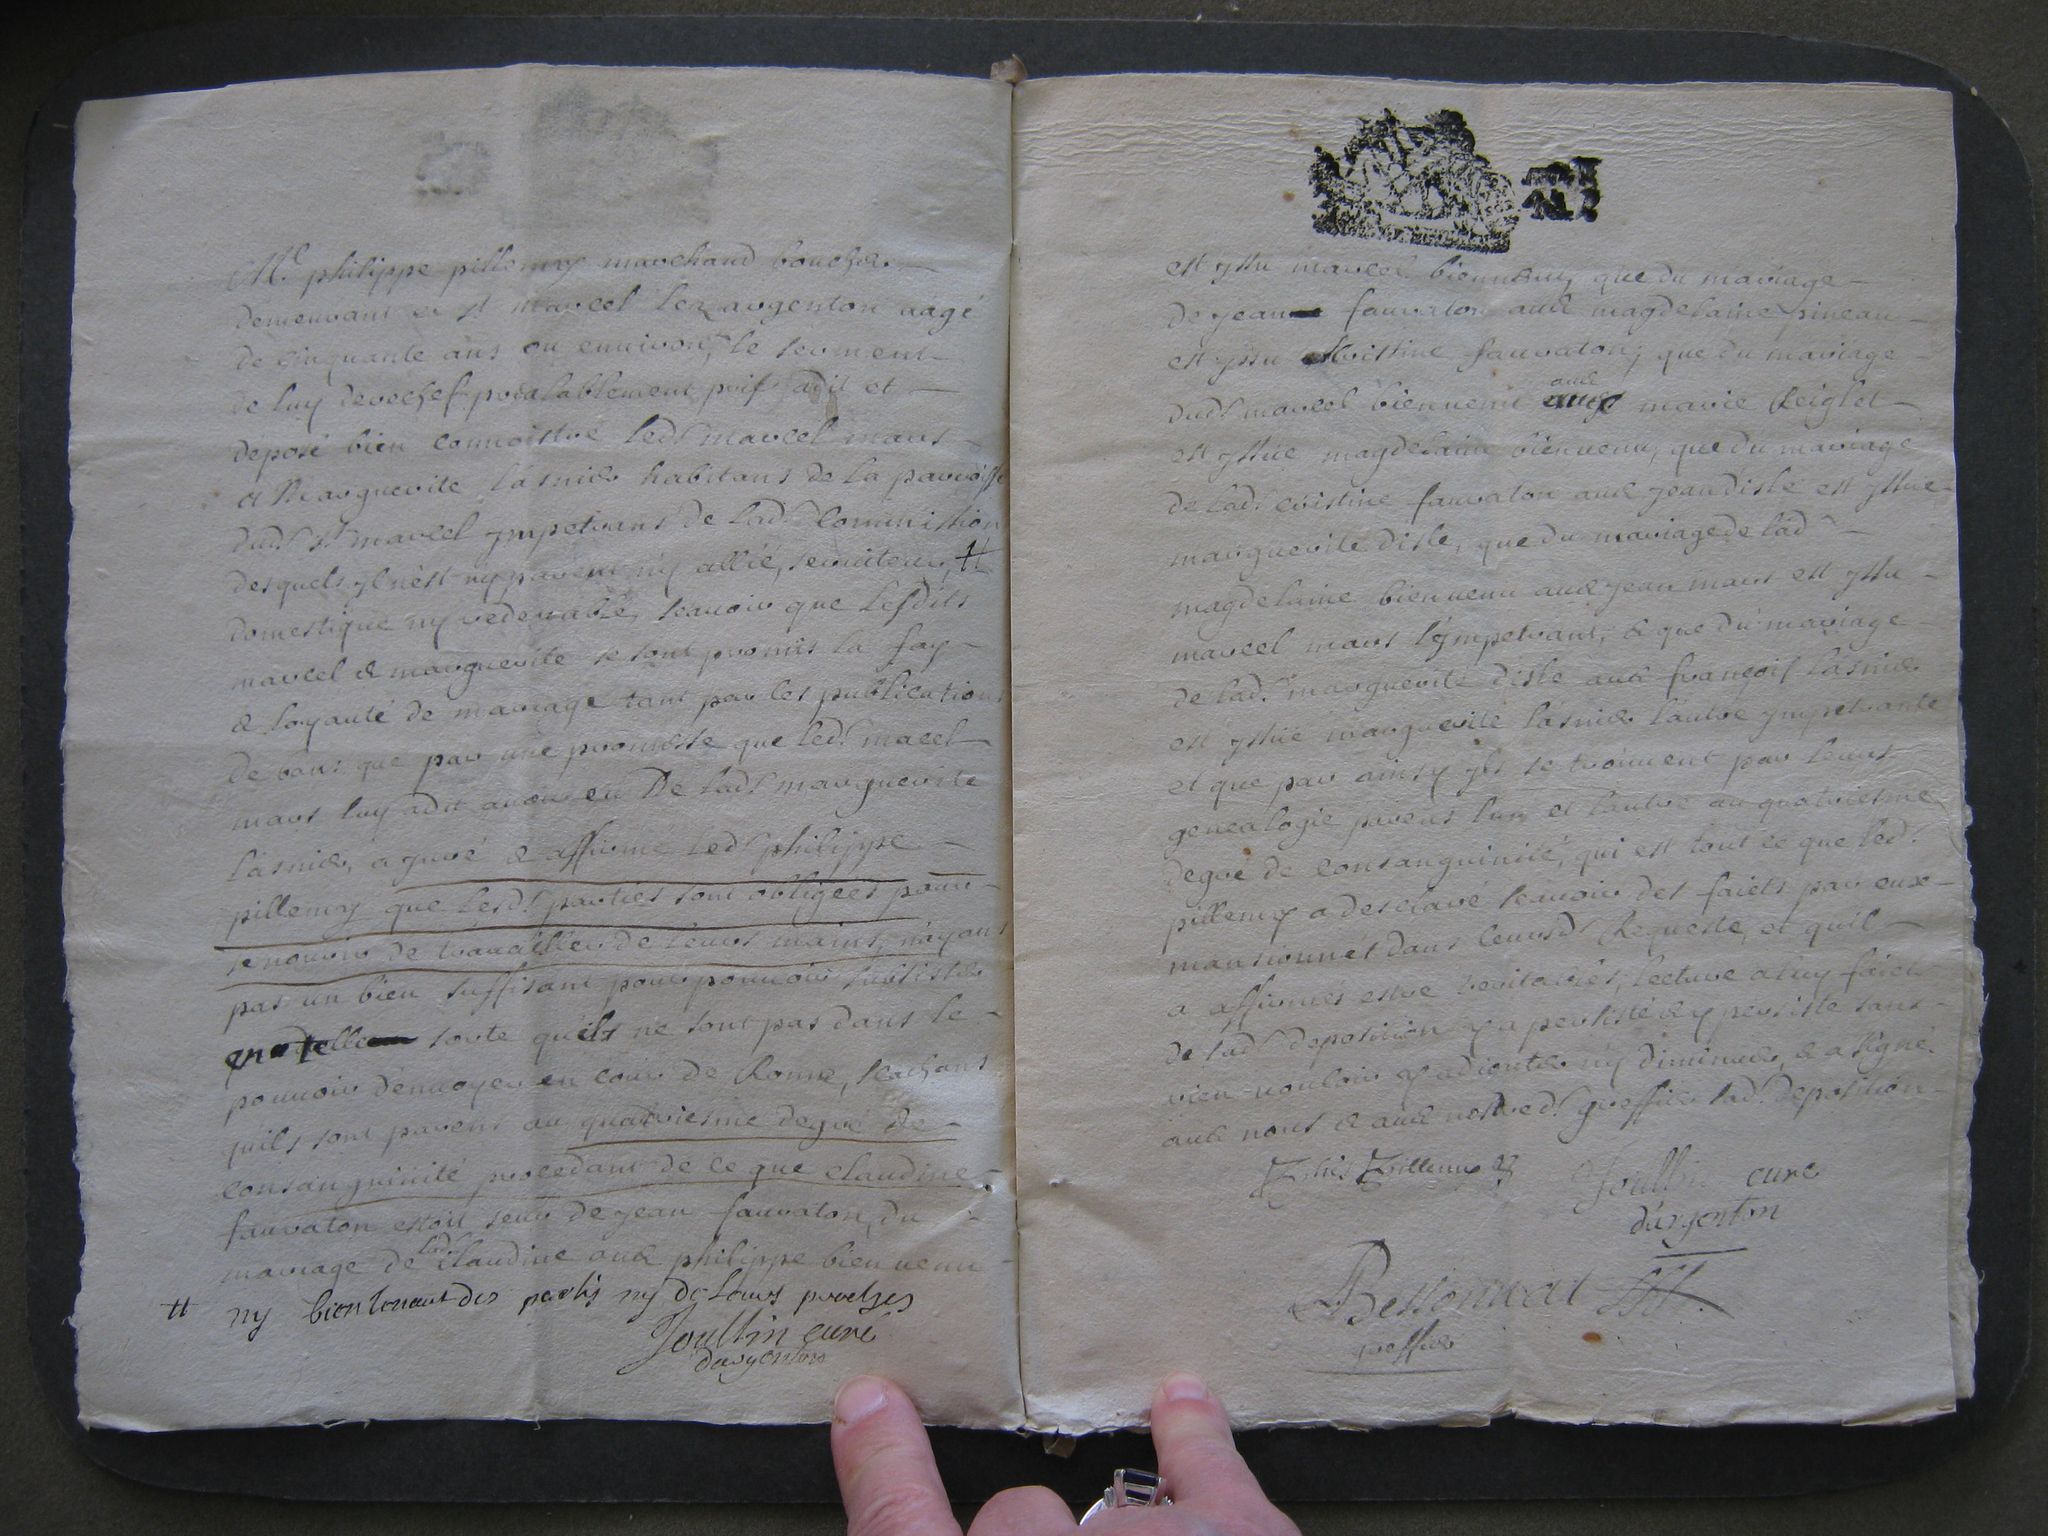 Me philippe pillemy marchand boucher
demeurant a st marcel lez argenton aagé
de cinquante ans ou environ, le serment
de luy derechef prealablement pris a dit et
deposé bien connoistre led. marcel mars
et Marguerite lasnier habitans de la parroisse
dud. st marcel ympetrans de lad. Commission
desquels yl n'est ny parent ny allié, seruiteur, #
domestique ny redeuable, scauoir que lesdits
marcel & marguerite se sont promis la foy
& loyauté de mariage tant par les publications
de bans que par une promesse que led. macel
mars luy a dit auoir eu De lad. marguerite
lasnier, a juré & affirmé led. philippe
pillemy que lesd. parties sont obligées pour
se nourir de trauailler de leurs mains, n'ayans
pas un bien suffisant pour pouuoir subsister
en telle sorte qu'ils ne sont pas dans le
pouuoir d'enuoyer en cour de Rome, scachans
qu'ils sont parens au quatriesme degré de
consanguinité procedant de ce que claudine
fauraton estoit seur de jean fauraton, du
mariage de lad. Claudine auec philippe bienuenu
# ny bientenant des partis ny de leurs proches
Joullin curé
dargenton
est yssu marcel bienuenu, que du mariage
de jean fauraton auec magdelaine pineau
est yssu Cristine fauraton; que du mariage
dud. marcel bienuenu auec marie Reiglet
est yssue magdelaine bienuenu, que du mariage
de lad. cristine fauraton auec jean disle est yssue
marguerite disle, que du mariage de lad.
magdelaine bienuenu auec jean mars est yssu
marcel mars l'ympetrant, & que du mariage
de lad. marguerite disle auec françois lasnier
est yssue marguerite lasnier l'autre ympetrante
et que par ainsy yls se trouuent par leurs
genealogie parens l'un et l'autre au quatriesme
degré de consanguinité, qui est tout ce que led.
pillemy a desclaré scauoir des faicts par eux
mansionnes dans leursd. Requeste, et qu'il
a affirmés estre veritables, lecture a luy faict
de sad. deposition y a persisté & y persiste sans
rien vouloir y adiouter ny diminuer, & a signé
auec nous & auec nostred. greffier sad. deposition
Philip pillemy
Joullin curé
d'argenton
Bessonneau
greffier